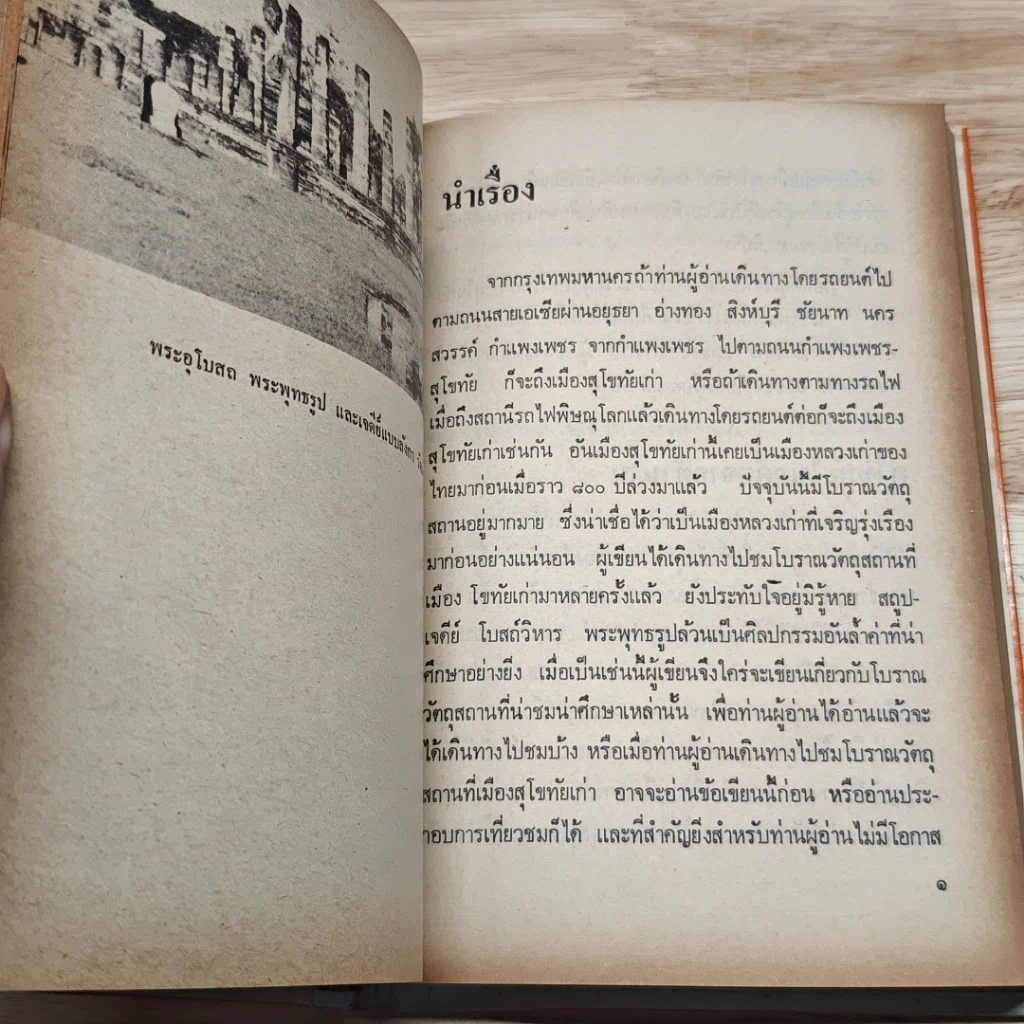 พระอุโบสถ พระพุทธรูป และเจดีย์แบบลังกา
นำเรื่อง
จากกรุงเทพมหานครถ้าท่านผู้อ่านเดินทางโดยรถยนต์ไป
ตามถนนสายเอเซียผ่านอยุธยา อ่างทอง สิงห์บุรี ชัยนาท นคร
สวรรค์ กำแพงเพชร จากกำแพงเพชร ไปตามถนนกำแพงเพชร-
สุโขทัย ก็จะถึงเมืองสุโขทัยเก่า หรือถ้าเดินทางตามทางรถไฟ
เมื่อถึงสถานีรถไฟพิษณุโลกแล้วเดินทางโดยรถยนต์ต่อก็จะถึงเมือง
สุโขทัยเก่าเช่นกัน อันเมืองสุโขทัยเก่านี้เคยเป็นเมืองหลวงเก่าของ
ไทยมาก่อนเมื่อราว ๘๐๐ ปีล่วงมาแล้ว ปัจจุบันนี้มีโบราณวัตถุ
สถานอยู่มากมาย ซึ่งน่าเชื่อได้ว่าเป็นเมืองหลวงเก่าที่เจริญรุ่งเรือง
มาก่อนอย่างแน่นอน ผู้เขียนได้เดินทางไปชมโบราณวัตถุสถานที่
เมือง โขทัยเก่ามาหลายครั้งแล้ว ยังประทับใจอยู่มิรู้หาย สถูป-
เจดีย์ โบสถ์วิหาร พระพุทธรูปล้วนเป็นศิลปกรรมอันล้ำค่าที่น่า
ศึกษาอย่างยิ่ง เมื่อเป็นเช่นนี้ผู้เขียนจึงใคร่จะเขียนเกี่ยวกับโบราณ
วัตถุสถานที่น่าชมน่าศึกษาเหล่านั้น เพื่อท่านผู้อ่านได้อ่านแล้วจะ
ได้เดินทางไปชมบ้าง หรือเมื่อท่านผู้อ่านเดินทางไปชมโบราณวัตถุ
สถานที่เมืองสุโขทัยเก่า อาจจะอ่านข้อเขียนนี้ก่อน หรืออ่านประ-
กอบการเที่ยวชมก็ได้ และที่สำคัญยิ่งสำหรับท่านผู้อ่านไม่มีโอกาส
๑